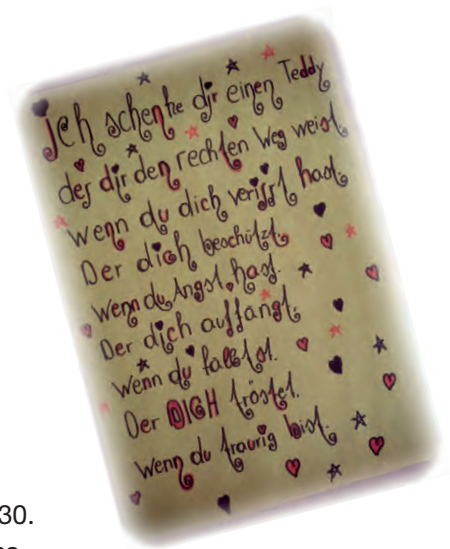 Ich schenke dir einen Teddy
der dir den rechten Weg weist,
wenn du dich verirrt hast.
Der dich beschützt.
Wenn du Angst hast.
Der dich auffängt.
Wenn du fällst.
Der DICH tröstet.
Wenn du traurig bist.
30.